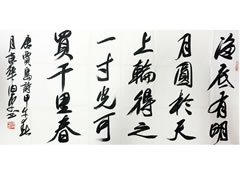 海底有明
月圓於天
上輪得之
一寸光可
買千里春
唐賈島詩甲午秋
月京華